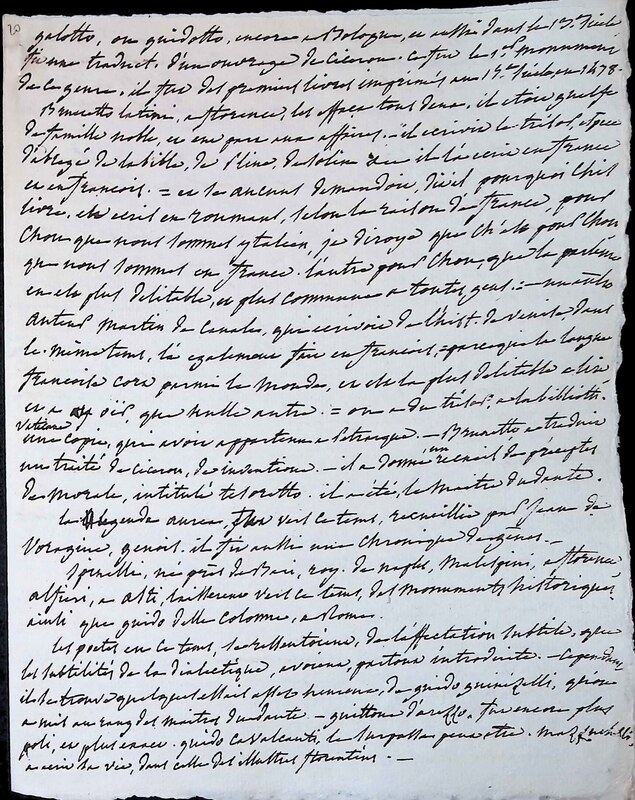 20
galotto, ou guidotto, encore a Bologne, et aussi dans le 13.e Siècle
fit une traduct. d'un ouvrage de ciceron. ce fut le 1.er monument
de ce genre. il fut des premiers livres imprimés au 15.e Siècle en 1478.
Brunetto latini, a florence, les efface tous deux. il etoit guelfe
de famille noble, et eut part aux affaires. il ecrivit le tresor, espece
d'abregé de la bible, de pline, de solin il l'a ecrit en france
et en francois. = et se aucuns demandoit, dit il pourquoi Chis
livre, est ecrit en roumans, selon la raison de france, pour
Chou que nous sommes ytalien, je diroye que Ch'est pour Chou
que nous sommes en france. l'autre pour Chou, que la parleure
en est plus delitable, et plus commune a toutes gens. = un autre
auteur martin de Canale, qui ecrivoit de l'hist. de venise dans
le même tems, l'a egalement fait en francois, = parceque la langue
francoise cort parmi le monde, et est la plus delitable a lire
et a oïr, que nulle autre. = on a du tresor, a la biblioth.
vaticane
une copie, qui avoit appartenu a Petrarque. — Brunetto a traduit
un traité de ciceron, de inventione. — il a donné un recueil de préceptes
de morale, intitulé tesoretto. il a été, le maitre du dante.
la legenda aurea, fut vers ce tems, recueillie par Jean de
Voragine, genois. il fit aussi une chronique de gènes. —
Spinelli, né près de Bari, roy. de naples, Malespini, a florence
alfieri, a asti, laisserent vers ce tems, des monuments historiques
ainsi que guido delle colonne, a Rome.
les poetes en ce tems, se ressentoient, de l'affectation subtile, que
les subtilités de la dialectique, avoient, partout introduite. — Cependant
il se trouve quelques essais assez heureux, de guido guinizelli, qu'on
a mis au rang des maitres du dante. — guittone d'arezzo, fut encore plus
poli, et plus exact. guido cavalcanti, le surpassa peut etre.
a ecrit sa vie, dans celle des illustres florentins. —